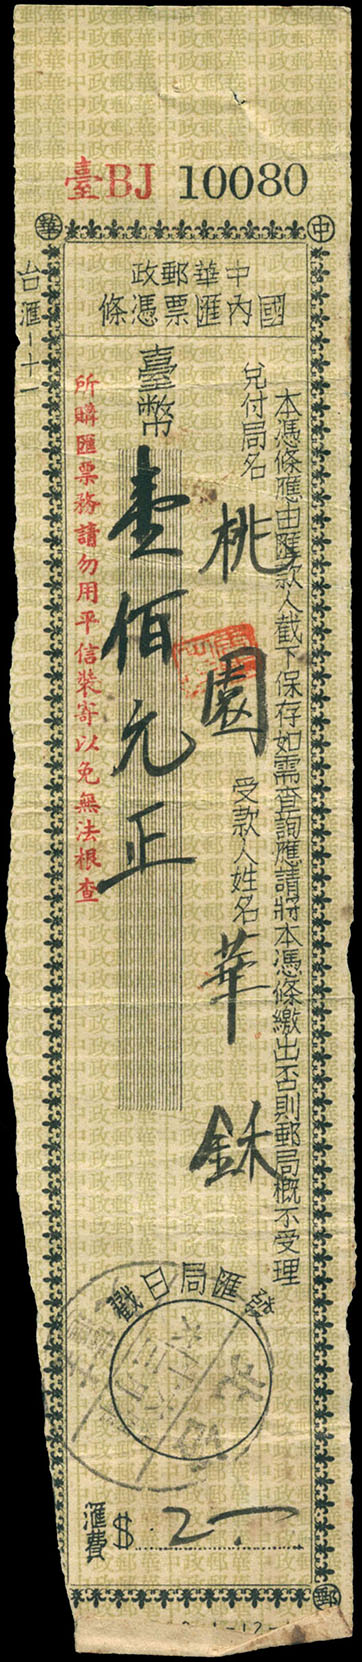 臺BJ 10080
中華郵政
國內匯票憑條
本憑條應由匯款人截下保存如需查詢應請將本憑條繳出否則郵局概不受理
兌付局名 桃園
受款人姓名 華
臺幣 壹佰元正
所購匯票務請勿用平信裝寄以免無法根查
台滙-十一
發匯局日戳
滙費 $ 2一
華
中
郵